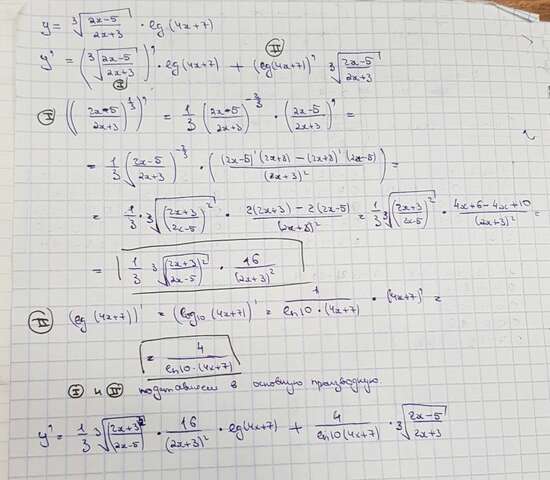 y = ∛((2x-5)/(2x+3)) · lg(4x+7)
y' = (∛((2x-5)/(2x+3)))' · lg(4x+7) + (lg(4x+7))' ∛((2x-5)/(2x+3))
I II
I ((2x-5)/(2x+3))^(1/3))' = 1/3 ((2x-5)/(2x+3))^(-2/3) · ((2x-5)/(2x+3))' =
= 1/3 ((2x-5)/(2x+3))^(-2/3) · (((2x-5)'(2x+3) - (2x+3)'(2x-5))/(2x+3)²) =
= 1/3 · ∛(((2x+3)/(2x-5))²) · (2(2x+3) - 2(2x-5))/(2x+3)² = 1/3 ∛(((2x+3)/(2x-5))²) · (4x+6-4x+10)/(2x+3)² =
= 1/3 ∛(((2x+3)/(2x-5))²) · 16/(2x+3)²
II (lg(4x+7))' = (log₁₀(4x+7))' = 1/(ln10·(4x+7)) · (4x+7)' =
= 4/(ln10·(4x+7))
I и II подставляем в основную производную.
y' = 1/3 ∛(((2x+3)/(2x-5))²) · 16/(2x+3)² · lg(4x+7) + 4/(ln10(4x+7)) · ∛((2x-5)/(2x+3))